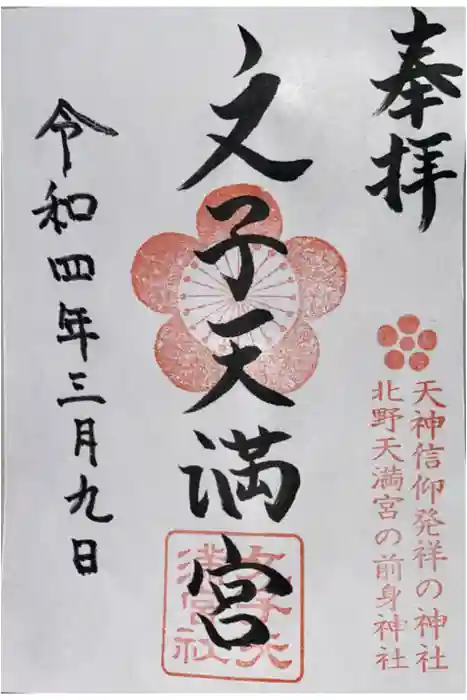 奉拝
天神信仰発祥の神社
北野天満宮の前身神社
文子天満宮
文子天満宮社
令和四年三月九日